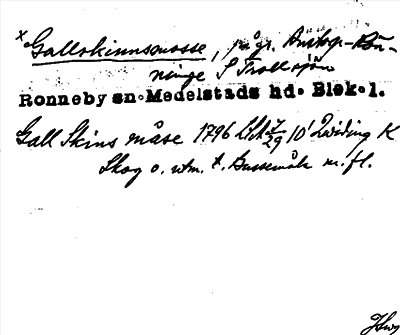 x Gallskinnsmosse, på gr. Anskog-Rön-
ninge S Trollsjön
Ronneby sn. Medelstads hd. Blek. l.
Gall Skins måse 1796 LSA 7/29 10' Zwiding K
Skog o. utm. t. Bussemåla m. fl.